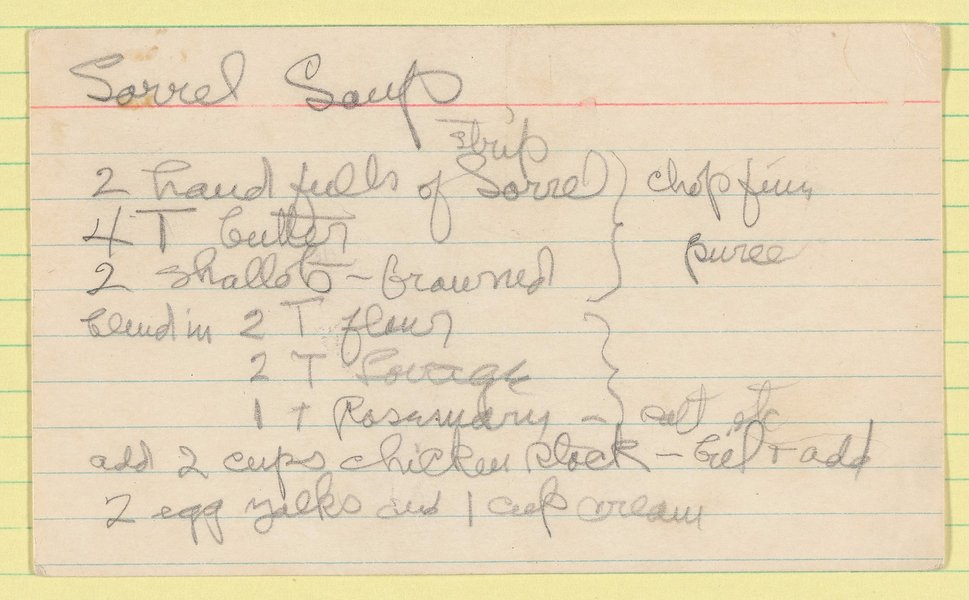 Sorrel Soup
strip
2 hand fulls of Sorrel } chop fine
4 T butter
puree
2 shallots - browned
blend in 2 T flour
2 T Lovage
1 t Rosemary - } salt etc
add 2 cups chicken stock - boil + add
2 egg yolks and 1 cup cream